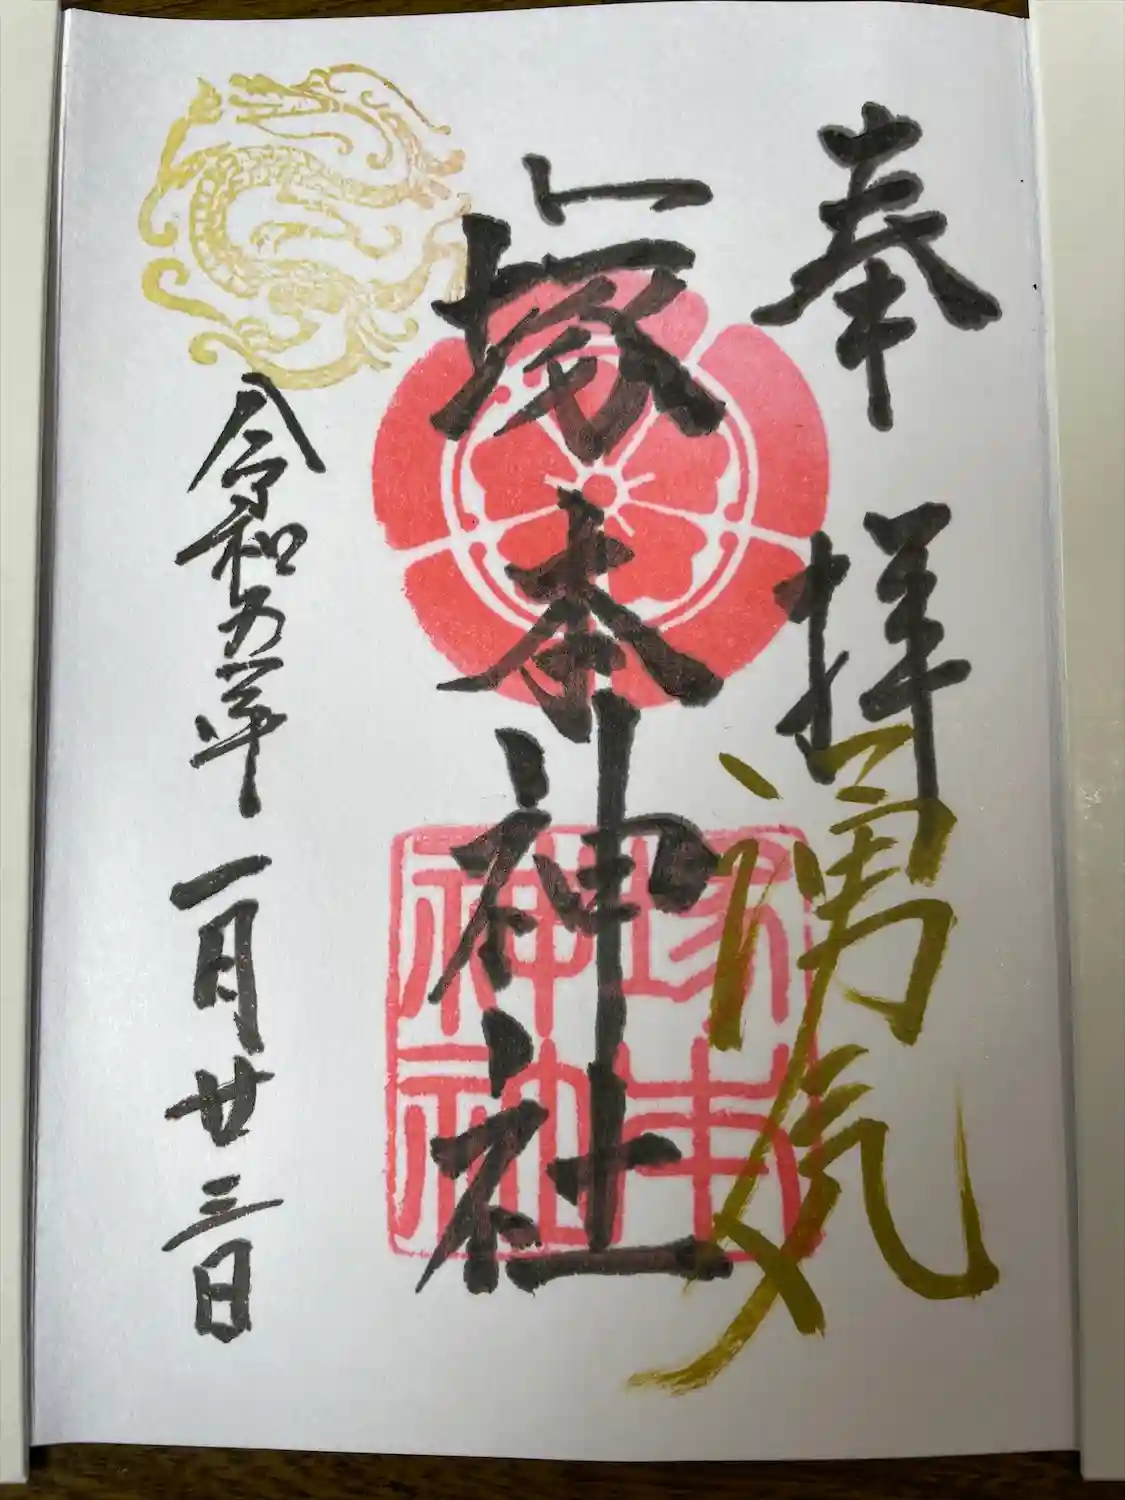 奉拝
湧気
塚本神社
塚本
神社
令和五年一月廿三日